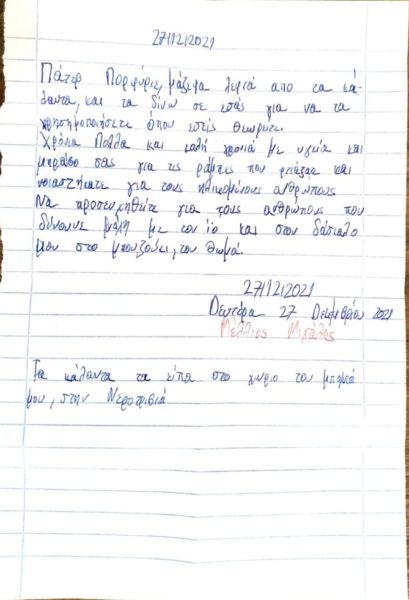 27/12/2021
Πάτερ Πορφύριε, μάζεψα λεφτά απο τα κά-
λαντα, και τα δίνω σε εσάς για να τα
χρησημοποιήσετε όπου εσείς θεωρείτε.
Χρόνια Πολλά και καλή χρονιά με υγεία και
μπράβο σας για τις ράμπες που φτιάξατε και
νοιαστήκατε για τους
Να προσευχηθείτε για τους ανθρώπους που
δίνουνε μάχη με τον ίο και στον δάσκαλο
μου στο μπουζούκι, τον Θωμά.
27/12/2021
Δευτέρα 27 Δεκεμβρίου 2021
Μέλλιος Μιχάλης
Τα κάλαντα τα είπα στο χωριο του μπαμπά
μου, στην Νεροτριβιά